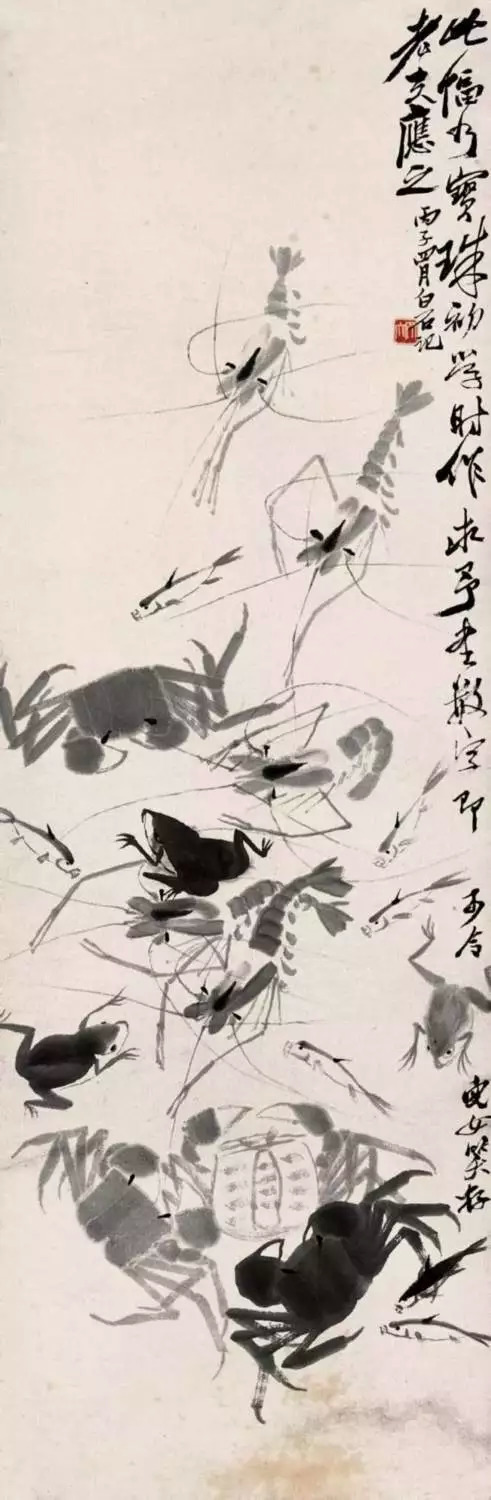 此幅乃寶珠初學時作求予書數字即
老夫應之
丙子四月白石記
女笑存